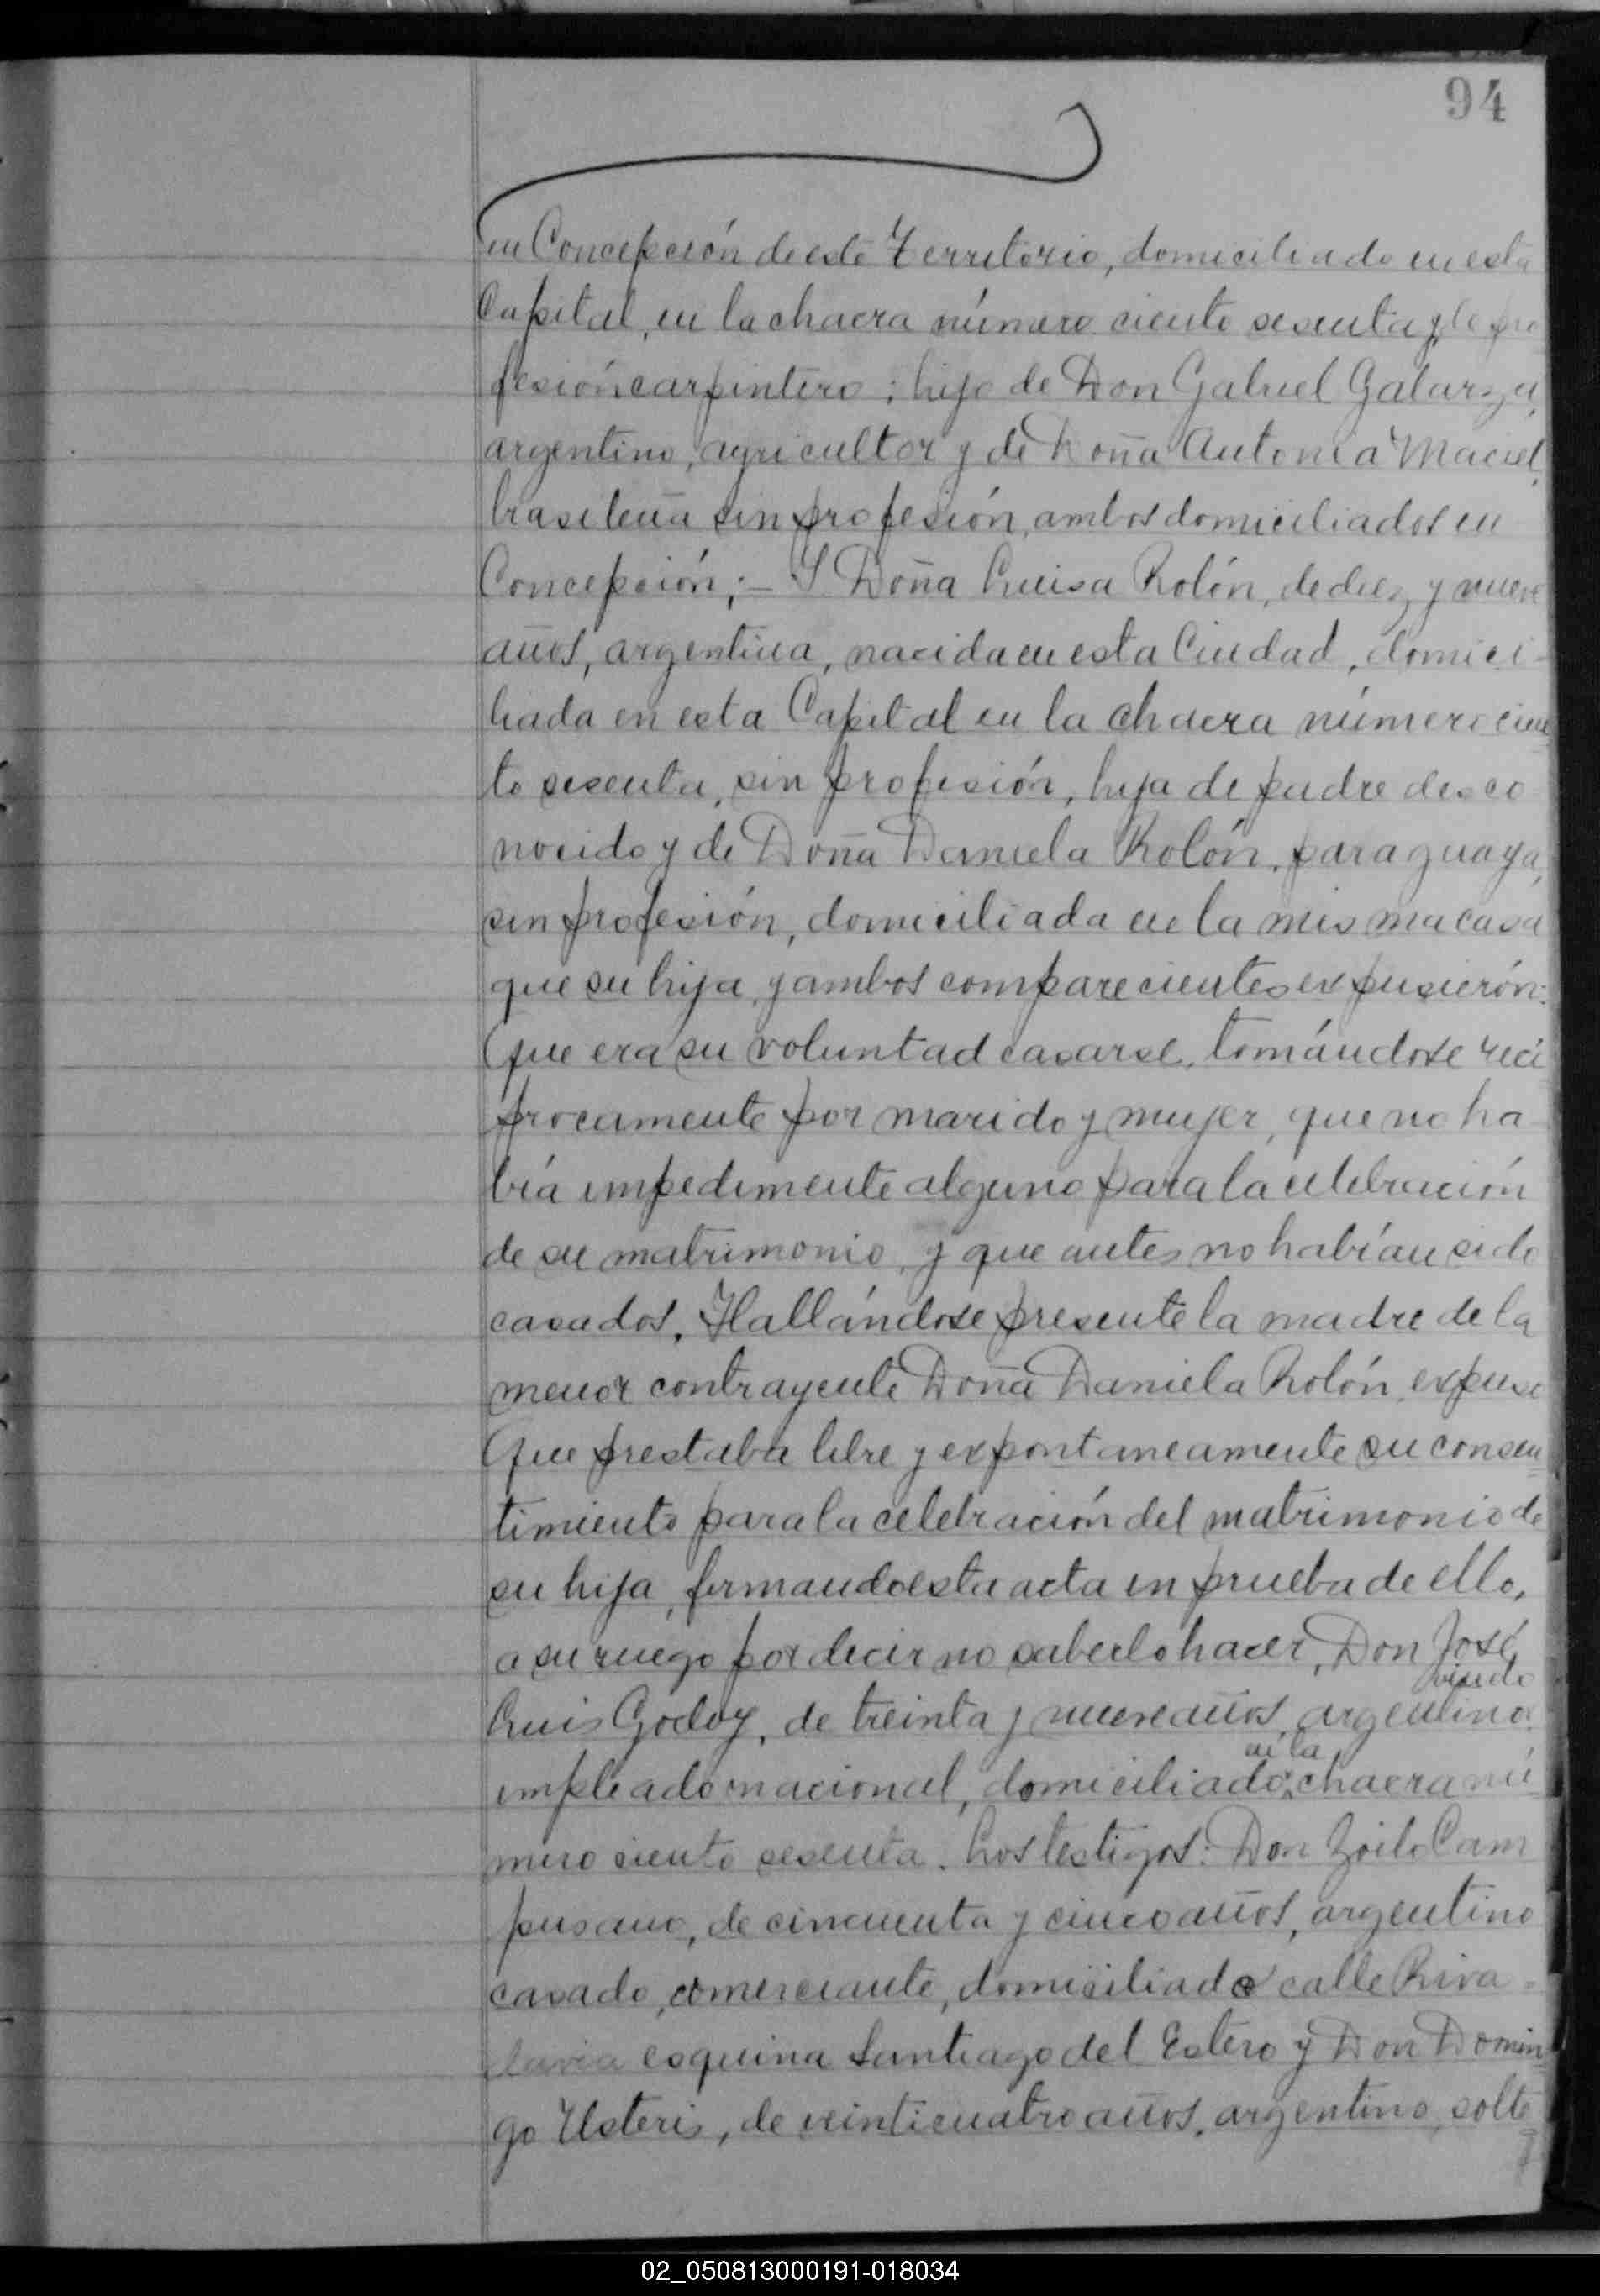 94
en Concepción de este Territorio, domiciliado en esta
Capital, en la chacra número ciento sesenta, de pro
fesión carpintero; hijo de Don Gabriel Galarza,
argentino, agricultor y de Doña Antonia Maciel,
brasileña sin profesión, ambos domiciliados en
Concepción; – Y Doña Luisa Rolón, de diez y nueve
años, argentina, nacida en esta Ciudad, domici-
liada en esta Capital en la chacra número cien
to sesenta, sin profesión, hija de padre desco
nocido y de Doña Daniela Rolón, paraguaya,
sin profesión, domiciliada en la misma casa
que su hija, y ambos comparecientes expusierón:
Que era su voluntad casarse, tomándose recí
procamente por marido y mujer, que no ha-
bía impedimente alguno para la celebración
de su matrimonio, y que antes no habían sido
casados. Hallándose presente la madre de la
menor contrayente Doña Daniela Rolón, expuso
Que prestaba libre y expontaneamente su consen
timiento para la celebración del matrimonio de
su hija, firmando esta acta en prueba de ello,
a su ruego por decir no saberlo hacer, Don José
viudo
Luis Godoy, de treinta y nueve años, argentino,
en la
empleado nacional, domiciliado chacra nú
mero ciento sesenta. Los testigos: Don Zoilo Cam
pusano, de cincuenta y cinco años, argentino
casado, comerciante, domiciliado calle Riva=
davia esquina Santiago del Estero y Don Domin
go Usteris, de veinticuatro años, argentino, solte
02_050813000191-018034